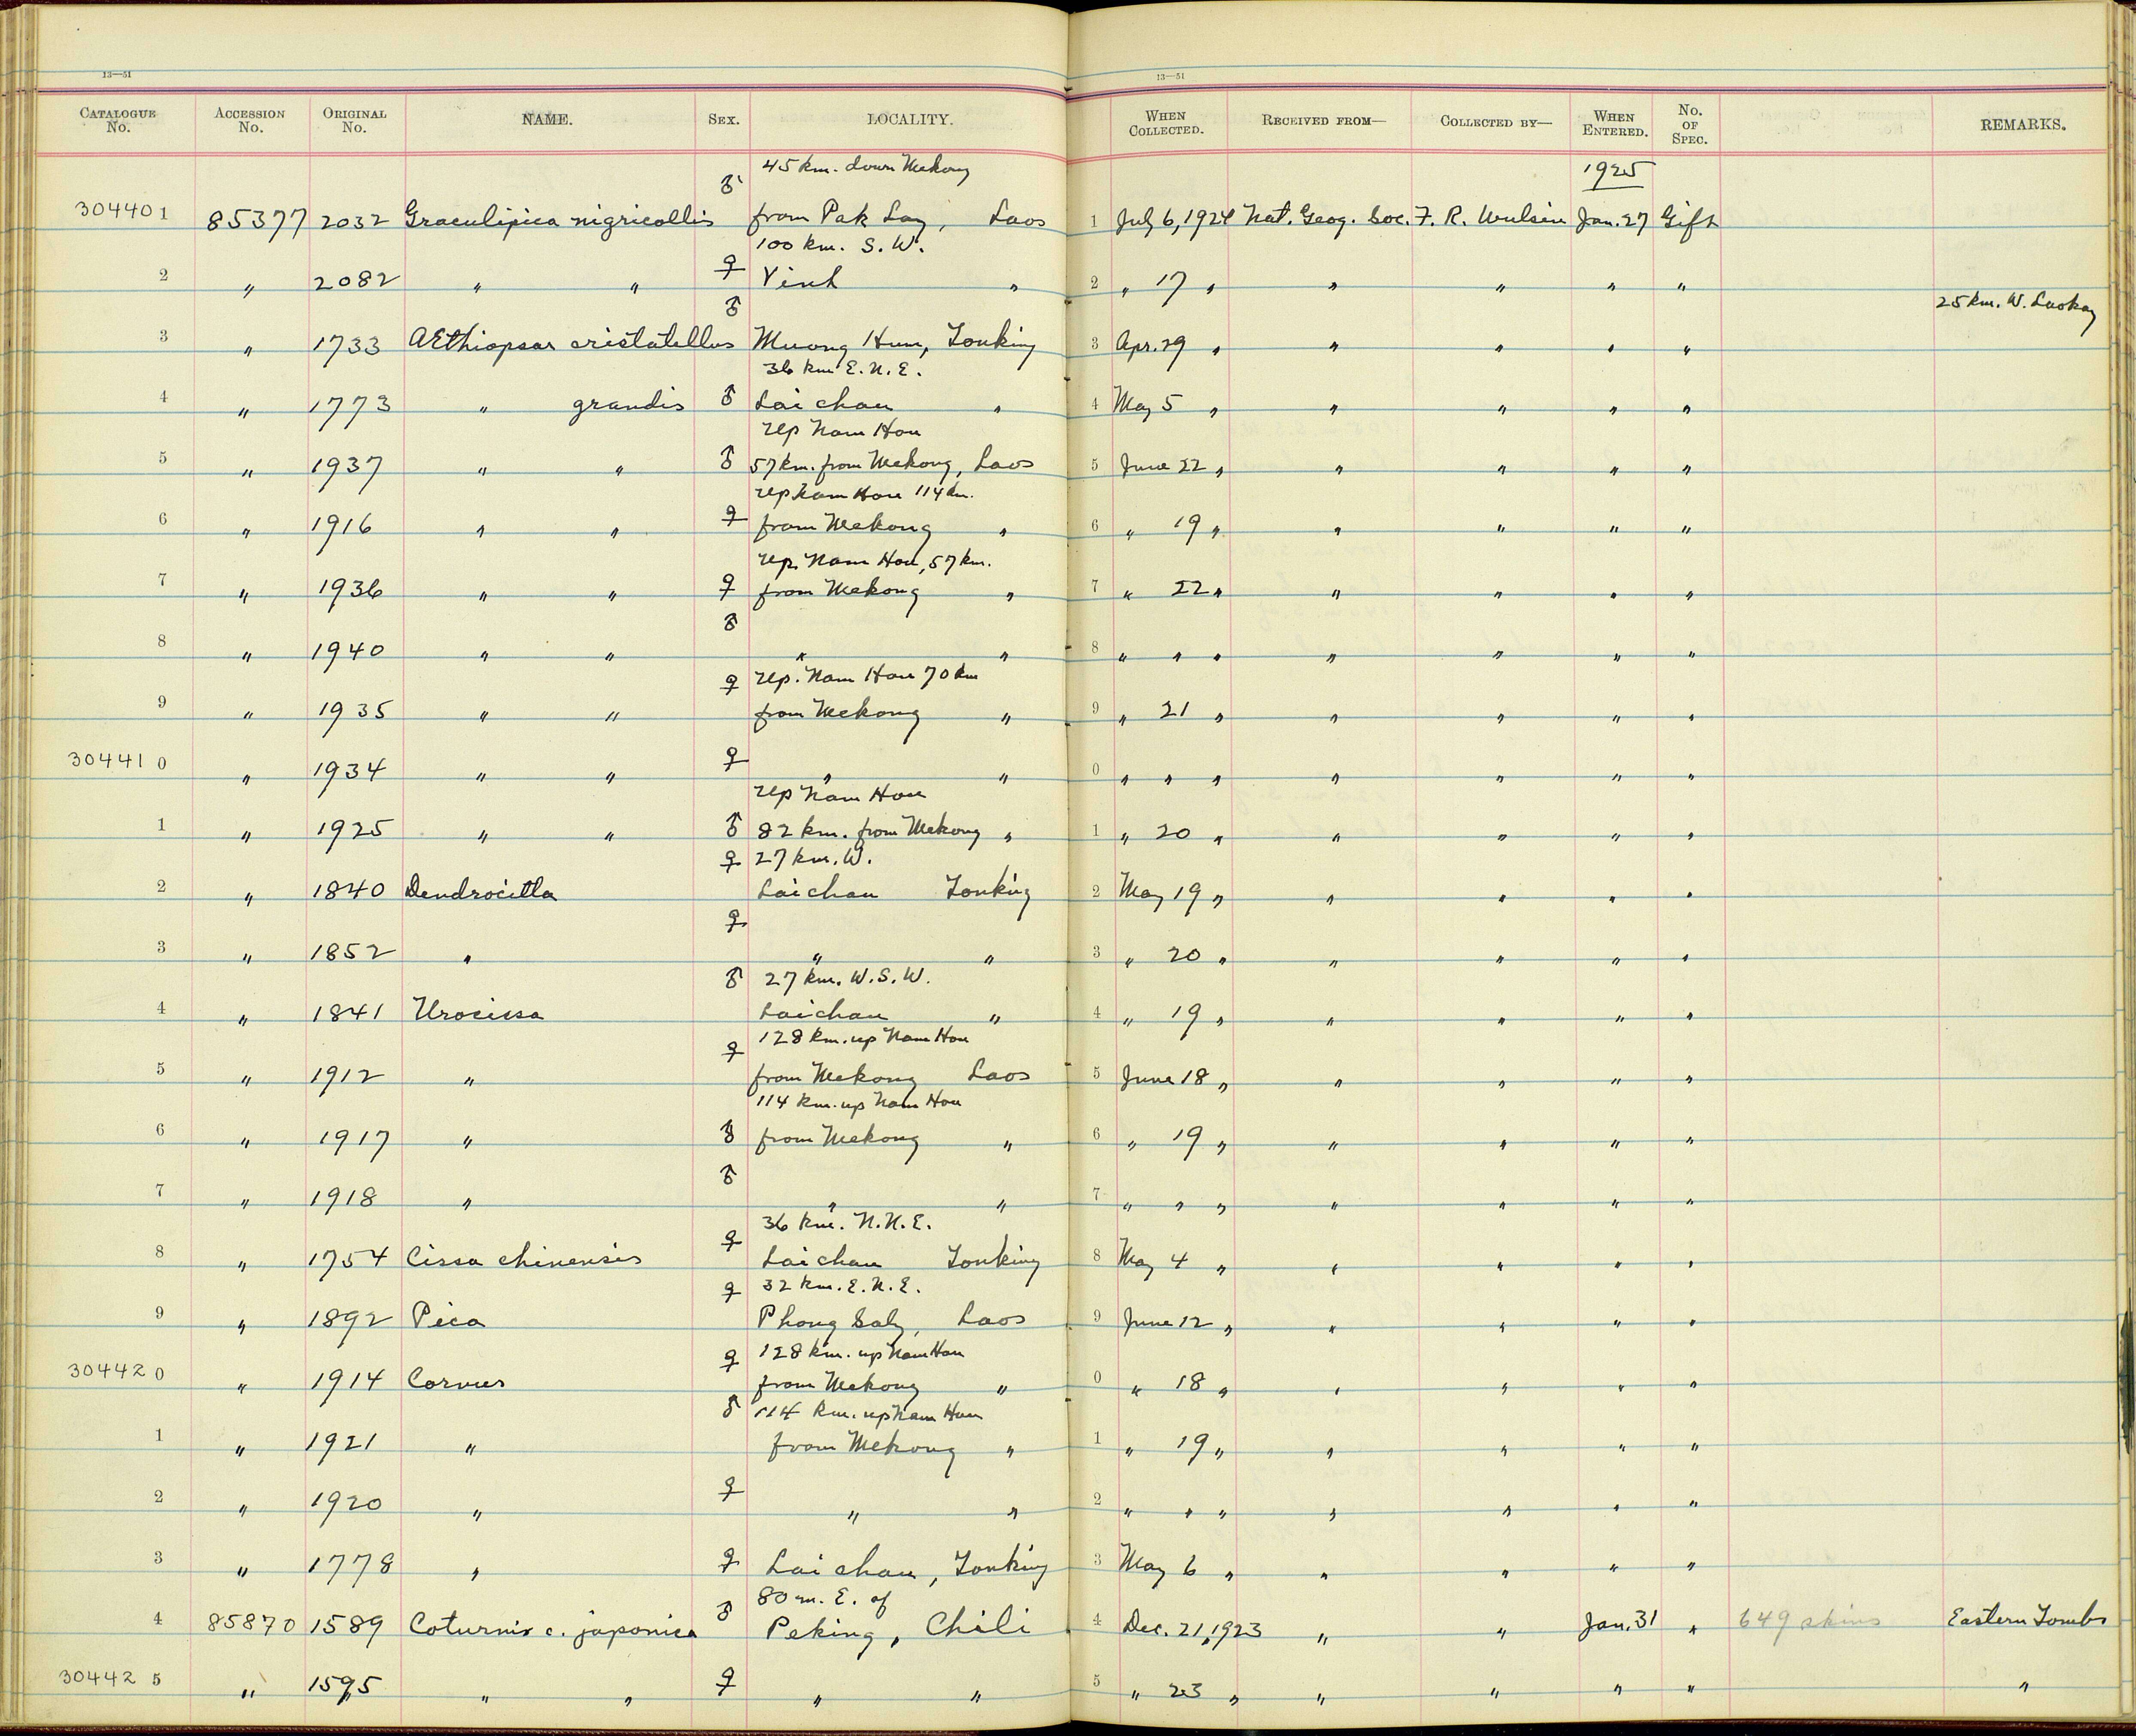 13—51 13—51
CATALOGUE No. ACCESSION No. ORIGINAL No. NAME. SEX. LOCALITY. WHEN COLLECTED. RECEIVED FROM— COLLECTED BY— WHEN ENTERED. No. OF SPEC. REMARKS.
45 km. down Mekong 1925
304401 85377 2032 Graculipica nigricollis ♂ from Pak Lay, Laos 1 July 6, 1924 Nat. Geog. Soc. F. R. Wulsin Jan. 27 Gift
100 km. S. W.
2 " 2082 " " ♀ Vinh " 2 " 17 " " " " "
25 km. W. Laokay
3 " 1733 AEthiopsar cristatellus ♂ Muong Hum, Tonking 3 Apr. 29 " " " " "
36 km E. N. E.
4 " 1773 " grandis ♂ Laichau " 4 May 5 " " " " "
up Nam Hou
5 " 1937 " " ♂ 57 km. from Mekong, Laos 5 June 22 " " " " "
up Nam Hou 114 km.
6 " 1916 " " ♀ from Mekong " 6 " 19 " " " " "
up. Nam Hou, 57 km.
7 " 1936 " " ♀ from Mekong " 7 " 22 " " " " "
8 " 1940 " " ♂ " " 8 " " " " " " "
up. Nam Hou 70 km
9 " 1935 " " ♀ from Mekong " 9 " 21 " " " " "
304410 " 1934 " " ♀ " " 0 " " " " " " "
up Nam Hou
1 " 1925 " " ♂ 82 km. from Mekong " 1 " 20 " " " " "
27 km. W.
2 " 1840 Dendrocitta ♀ Laichau Tonking 2 May 19 " " " " "
3 " 1852 " ♀ " " 3 " 20 " " " " "
27 km. W. S. W.
4 " 1841 Urocissa ♂ Laichau " 4 " 19 " " " " "
128 km. up Nam Hou
5 " 1912 " ♀ from Mekong Laos 5 June 18 " " " " "
114 km. up Nam Hou
6 " 1917 " ♂ from Mekong " 6 " 19 " " " " "
7 " 1918 " ♂ " " 7 " " " " " " "
36 km. N. N. E.
8 " 1754 Cissa chinensis ♀ Laichau Tonking 8 May 4 " " " " "
32 km. E. N. E.
9 " 1892 Pica ♀ Phong Saly, Laos 9 June 12 " " " " "
128 km. up Nam Hou
304420 " 1914 Corvus ♀ from Mekong " 0 " 18 " " " " "
114 km. up Nam Hou
1 " 1921 " ♂ from Mekong " 1 " 19 " " " " "
2 " 1920 " ♀ " " 2 " " " " " " "
3 " 1778 " ♀ Lai chau, Tonking 3 May 6 " " " " "
80 m. E. of
4 85870 1589 Coturnix c. japonica ♂ Peking, Chili 4 Dec. 21, 1923 " " Jan. 31 " 649 skins Eastern Tombs
304425 " 1595 " " ♀ " " 5 " 23 " " " " " "